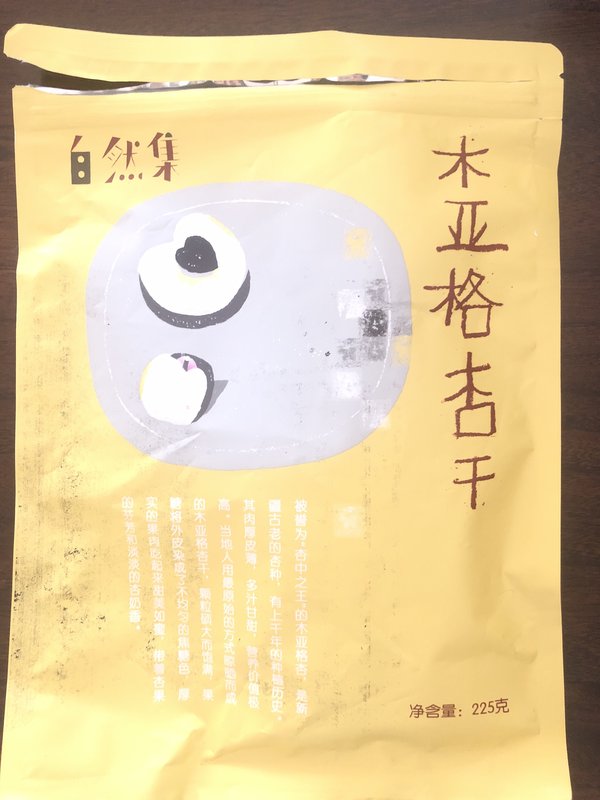 自然集
木亚格杏干
被誉为“杏中之王”的木亚格杏，是新
疆古老的杏种，有上千年的种植历史。
其肉厚皮薄，多汁甘甜，营养价值极
高。当地人用最原始的方式晾晒而成
的木亚格杏干，颗粒硕大而饱满，果
糖将外皮染成了不均匀的焦糖色，厚
实的果肉吃起来甜美如蜜，带着杏果
的芬芳和淡淡的杏奶香。
净含量：225克